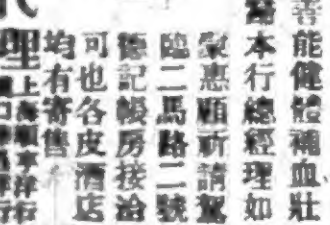 善能健體補血壯
本行總經理如
蒙惠顧祈請駕
臨二馬路二號
德記帳房接洽
可也各皮酒店
均有寄售
代理上海順享洋行